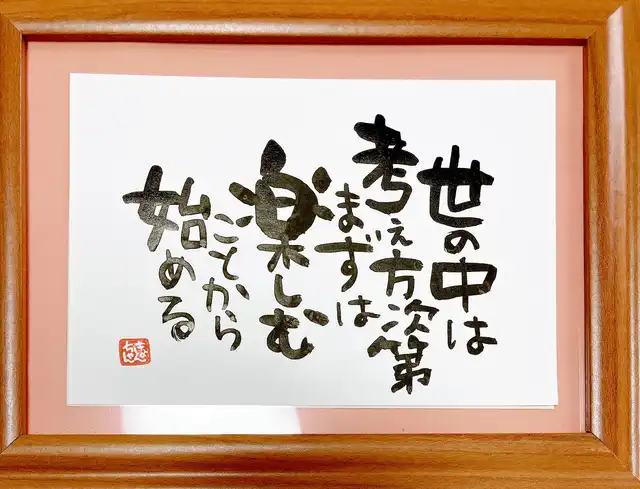 世の中は
考え方次第
まずは
楽しむ
ことから
始める